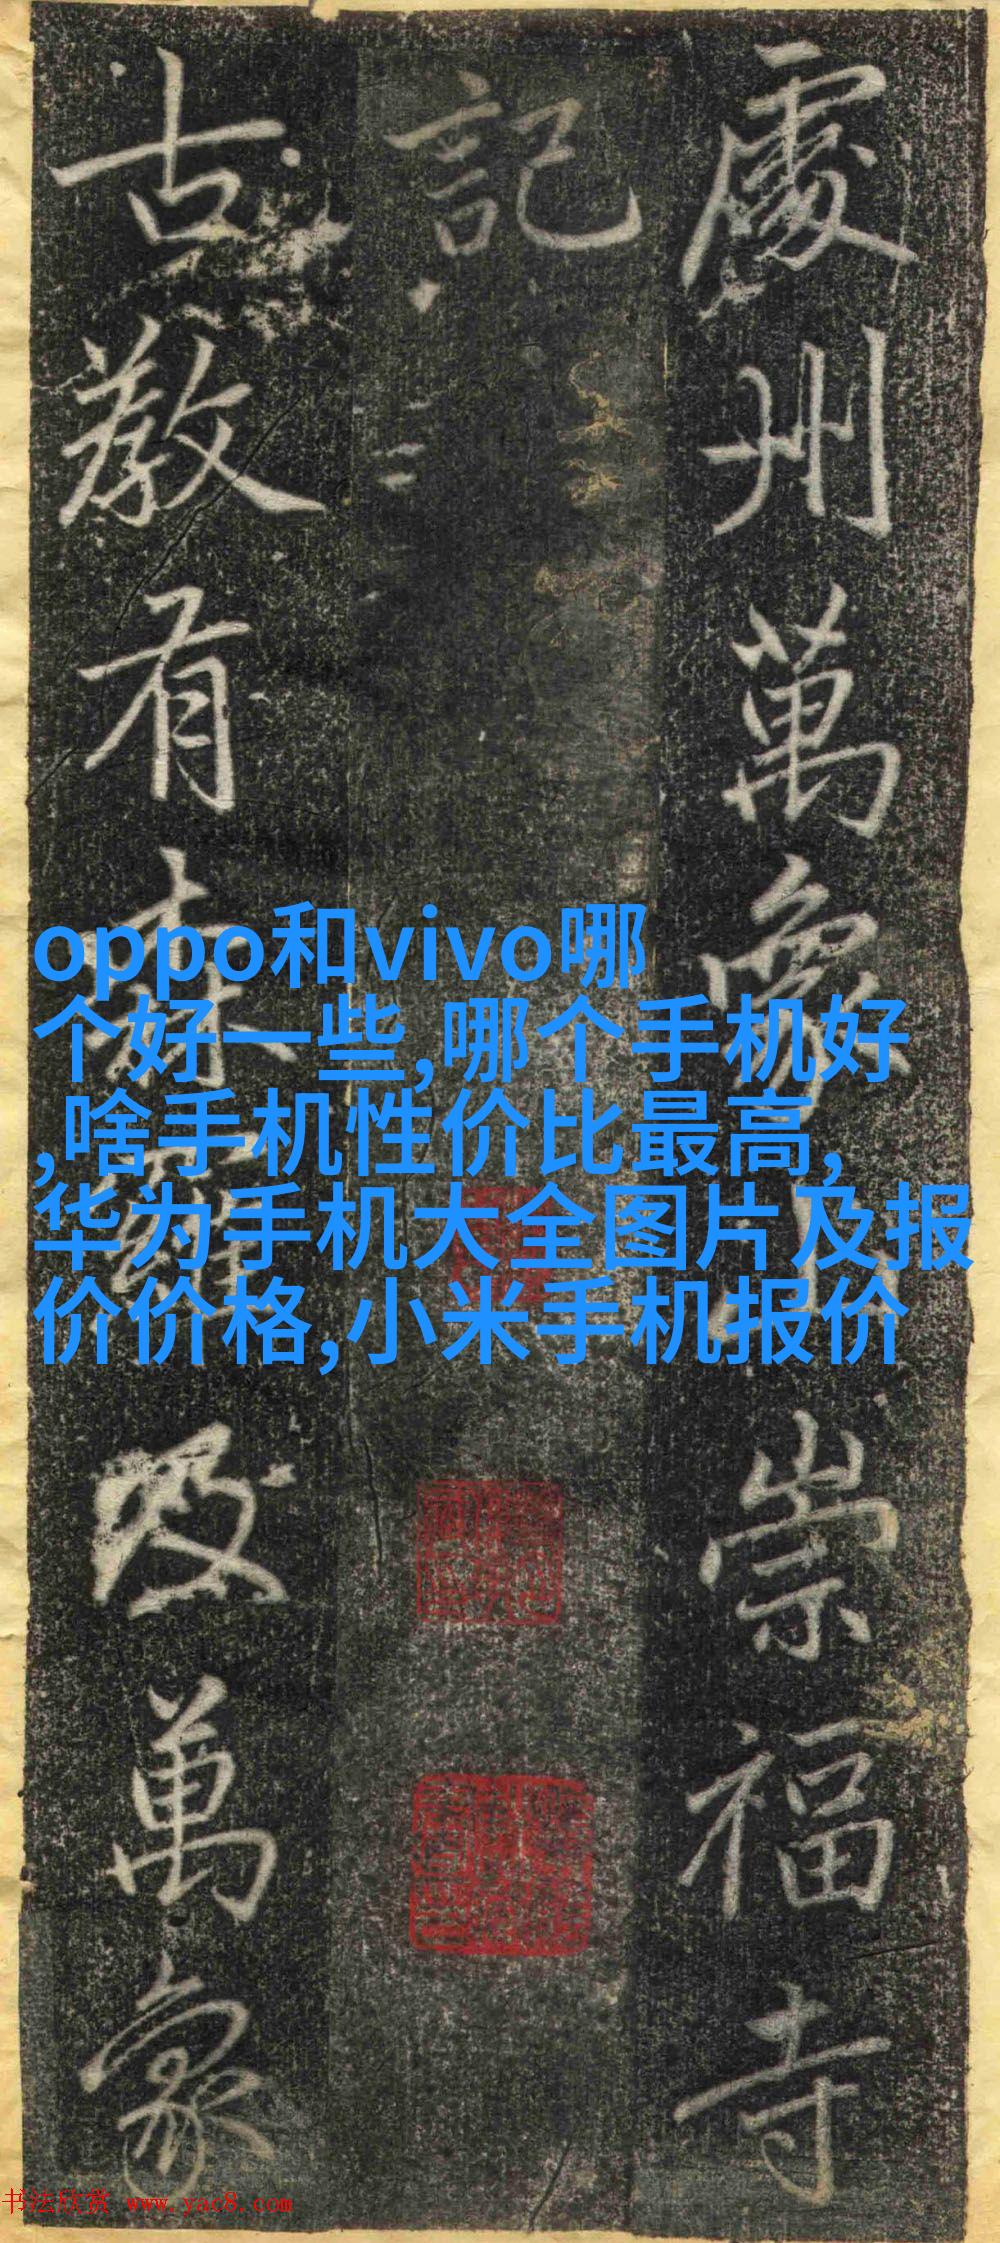 處州萬象山崇福寺
記
古教有森羅及萬象
oppo和vivo哪
个好一些,哪个手机好
,啥手机性价比最高,
华为手机大全图片及报
价价格,小米手机报价
书法欣赏 www.yac8.com